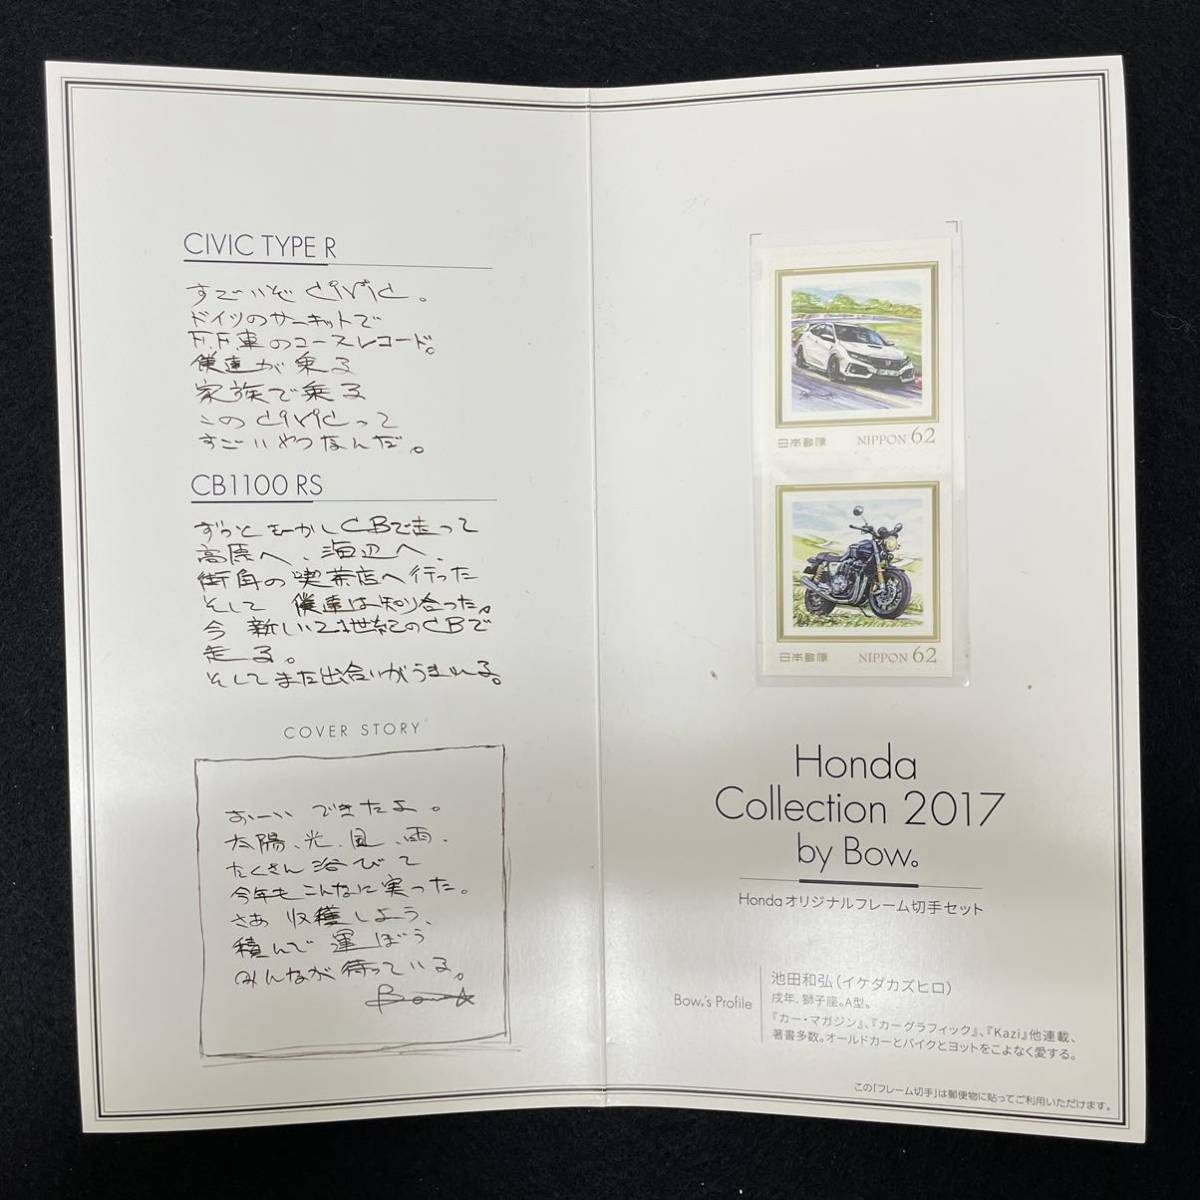 CIVIC TYPE R
すごいぞ CiViC。
ドイツのサーキットで
F.F車のコースレコード。
僕達が乗る
家族で乗る
このCiViCって
すごいやつなんだ。
CB1100 RS
ずっとむかしCBで走って
高原へ、海辺へ、
街角の喫茶店へ行った
そして 僕達は知り合った。
今 新しい21世紀のCBで
走る。
そしてまた出合いがうまれる。
COVER STORY
おーい できたよ。
太陽、光、風、雨、
たくさん浴びて
今年もこんなに実った。
さあ 収穫しよう、
積んで 運ぼう
みんなが待っている。
Bow☆
日本郵便 NIPPON 62
日本郵便 NIPPON 62
Honda
Collection 2017
by Bow。
Hondaオリジナルフレーム切手セット
Bow。's Profile
池田和弘(イケダカズヒロ)
戌年、獅子座。A型。
『カー・マガジン』、『カーグラフィック』、『Kazi』他連載、
著書多数。オールドカーとバイクとヨットをこよなく愛する。
この「フレーム切手」は郵便物に貼ってご利用いただけます。